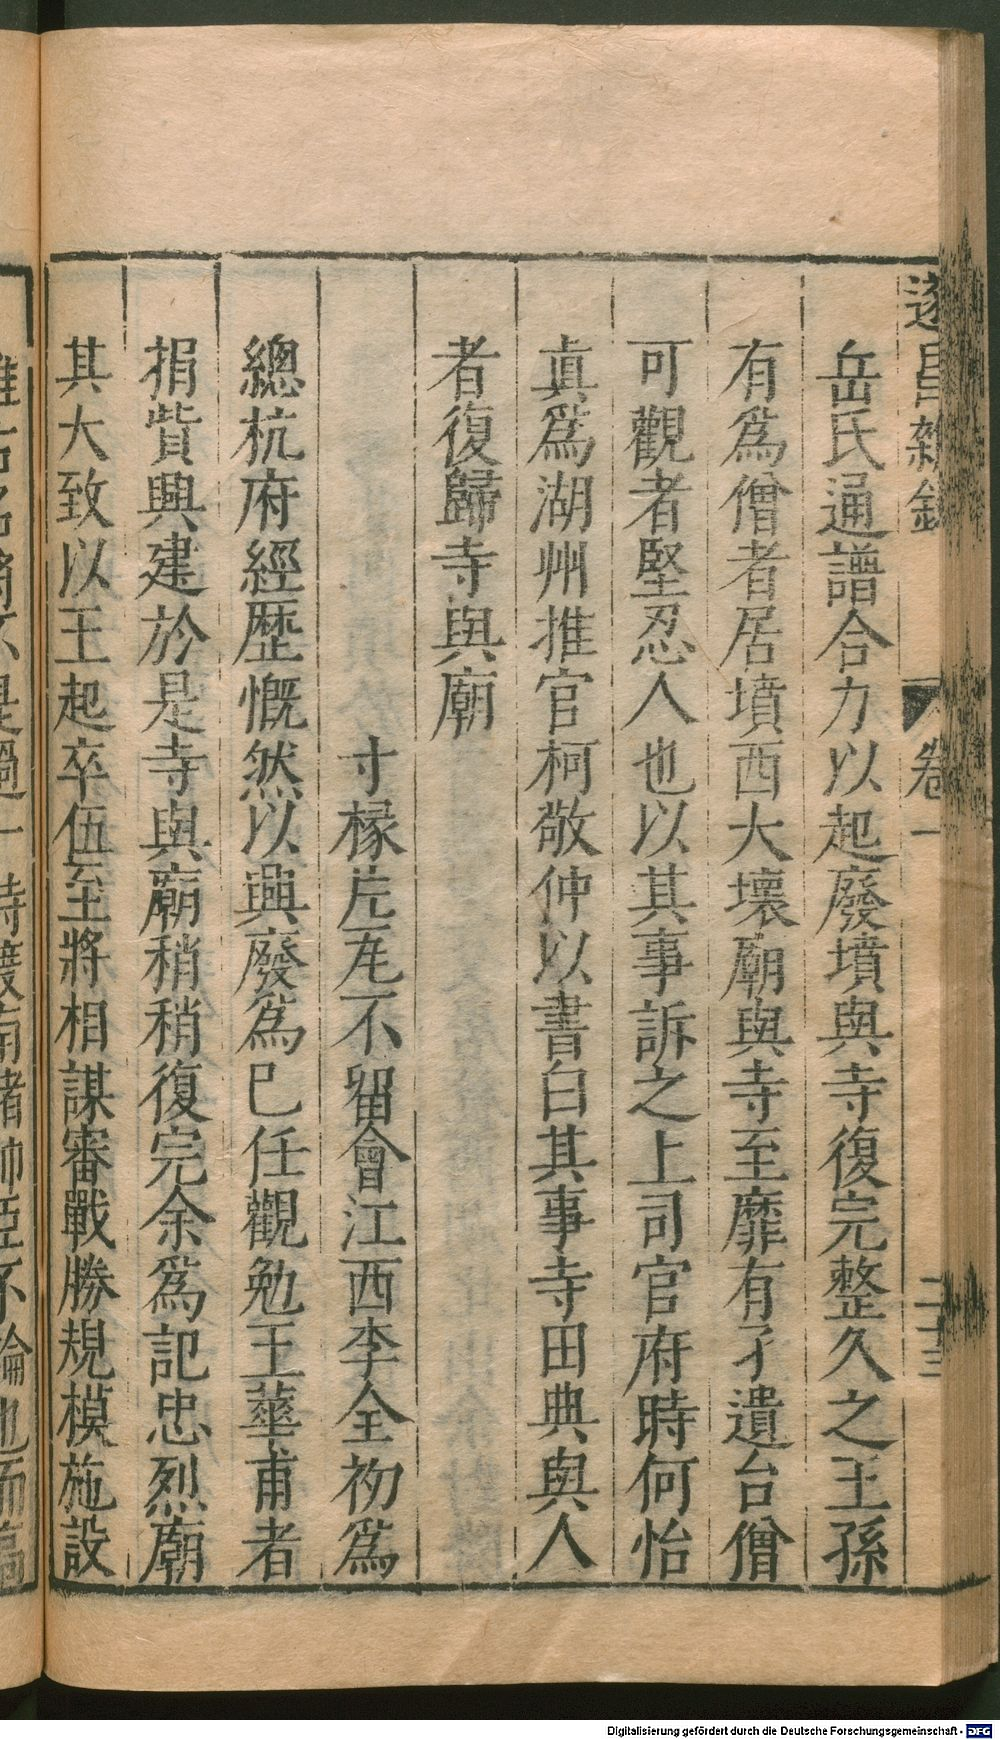 遂昌雜錄
卷一
二十三
岳氏通譜合力以起廢墳與寺復完整久之王孫
有爲僧者居墳西大壞廟與寺至靡有孑遺台僧
可觀者堅忍人也以其事訴之上司官府時何怡
眞爲湖州推官柯敬仲以書白其事寺田典與人
者復歸寺與廟
寸椽片瓦不留會江西李全初爲
總杭府經歷慨然以興廢爲己任觀勉王華甫者
捐貲興建於是寺與廟稍稍復完余爲記忠烈廟
其大致以王起卒伍至將相謀審戰勝規模施設
Digitalisierung gefördert durch die Deutsche Forschungsgemeinschaft - DFG